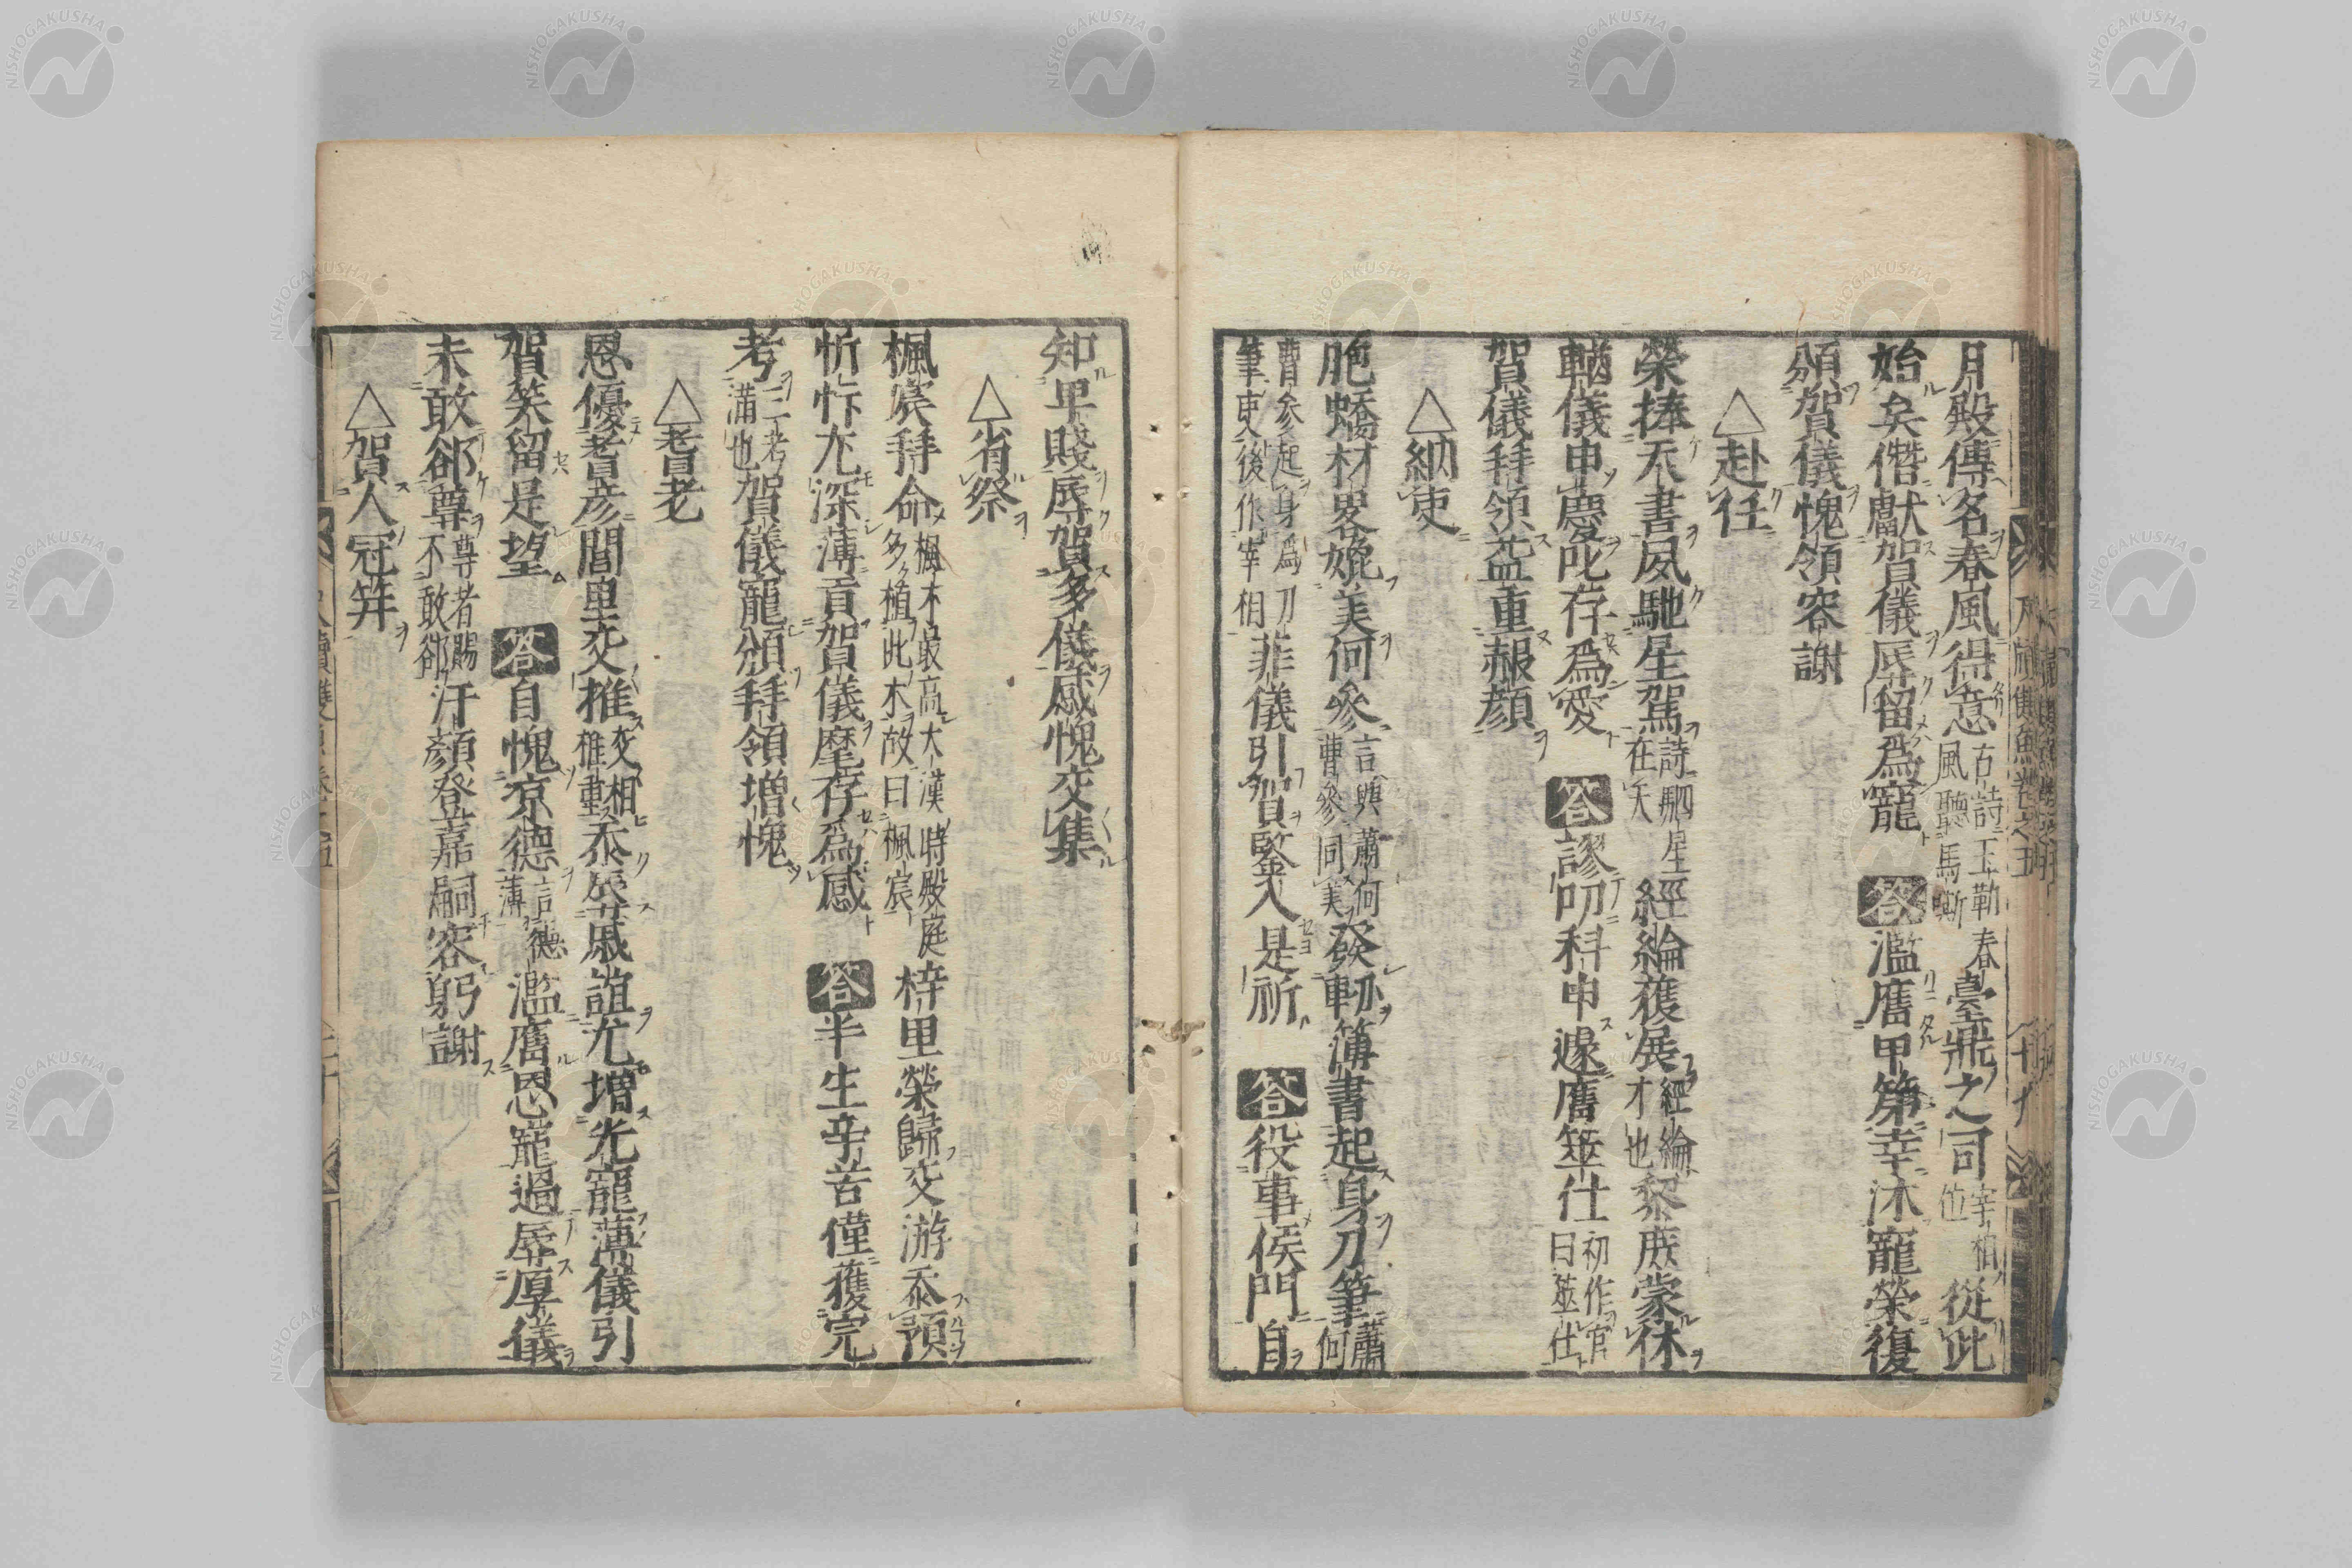 月殿傳名春風得意古詩玉勒春風聽馬嘶臺鼎之司宰相位從此
始矣僭獻賀儀辱留爲寵 答 濫膺甲第幸沐寵榮復
頒賀儀愧領容謝
△赴任
榮捧天書夙馳星駕詩駟星在天經綸獲展經綸才也黎庶蒙休
輶儀申慶叱存爲愛 答 謬叨科申遽膺筮仕初作官曰筮仕
賀儀拜領益重赧顔
△納吏
胞蟠材畧媲美何參言與蕭何曹參同美發軔簿書起身刀筆蕭何
曹參起身爲刀筆吏後作宰相菲儀引賀鑒入是祈 答 役事侯門自
知卑賤辱賀多儀感愧交集
△省祭
楓宸拜命楓木最高大漢時殿庭多植此木故曰楓宸梓里榮歸交游忝預
忻忭尤深薄貢賀儀麾存爲感 答 半生辛苦僅獲完
考三考滿也賀儀寵頒拜領增愧
△耆老
恩優耆彦閭里交推交相推重忝辰戚誼尤增光寵薄儀引
賀笑留是望 答 自愧凉德言德薄濫膺恩寵過辱厚儀
未敢郤尊尊者賜不敢郤汗顔登嘉嗣容躬謝
△賀人冠笄
NISHOGAKUSHA